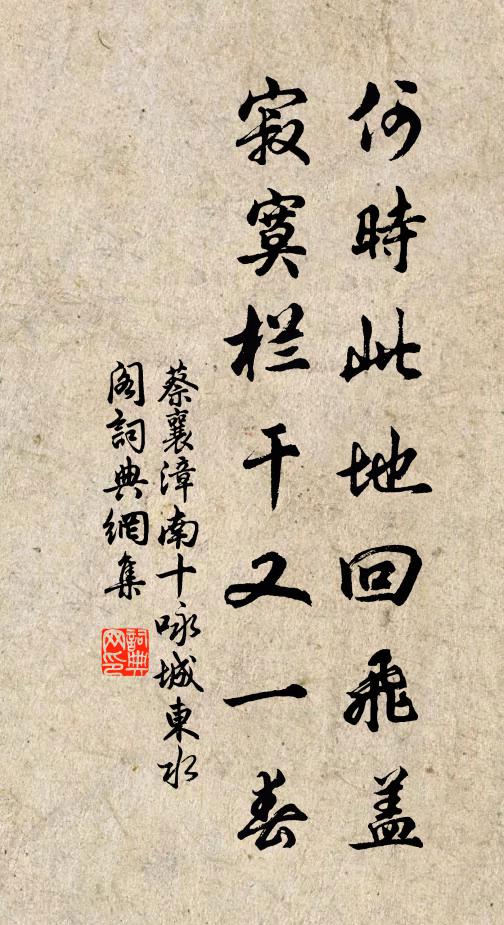 何時此地回飛盖
寂寞栏干又一春
蔡襄漳南十咏城東水
阁詞典網集
詞典网印